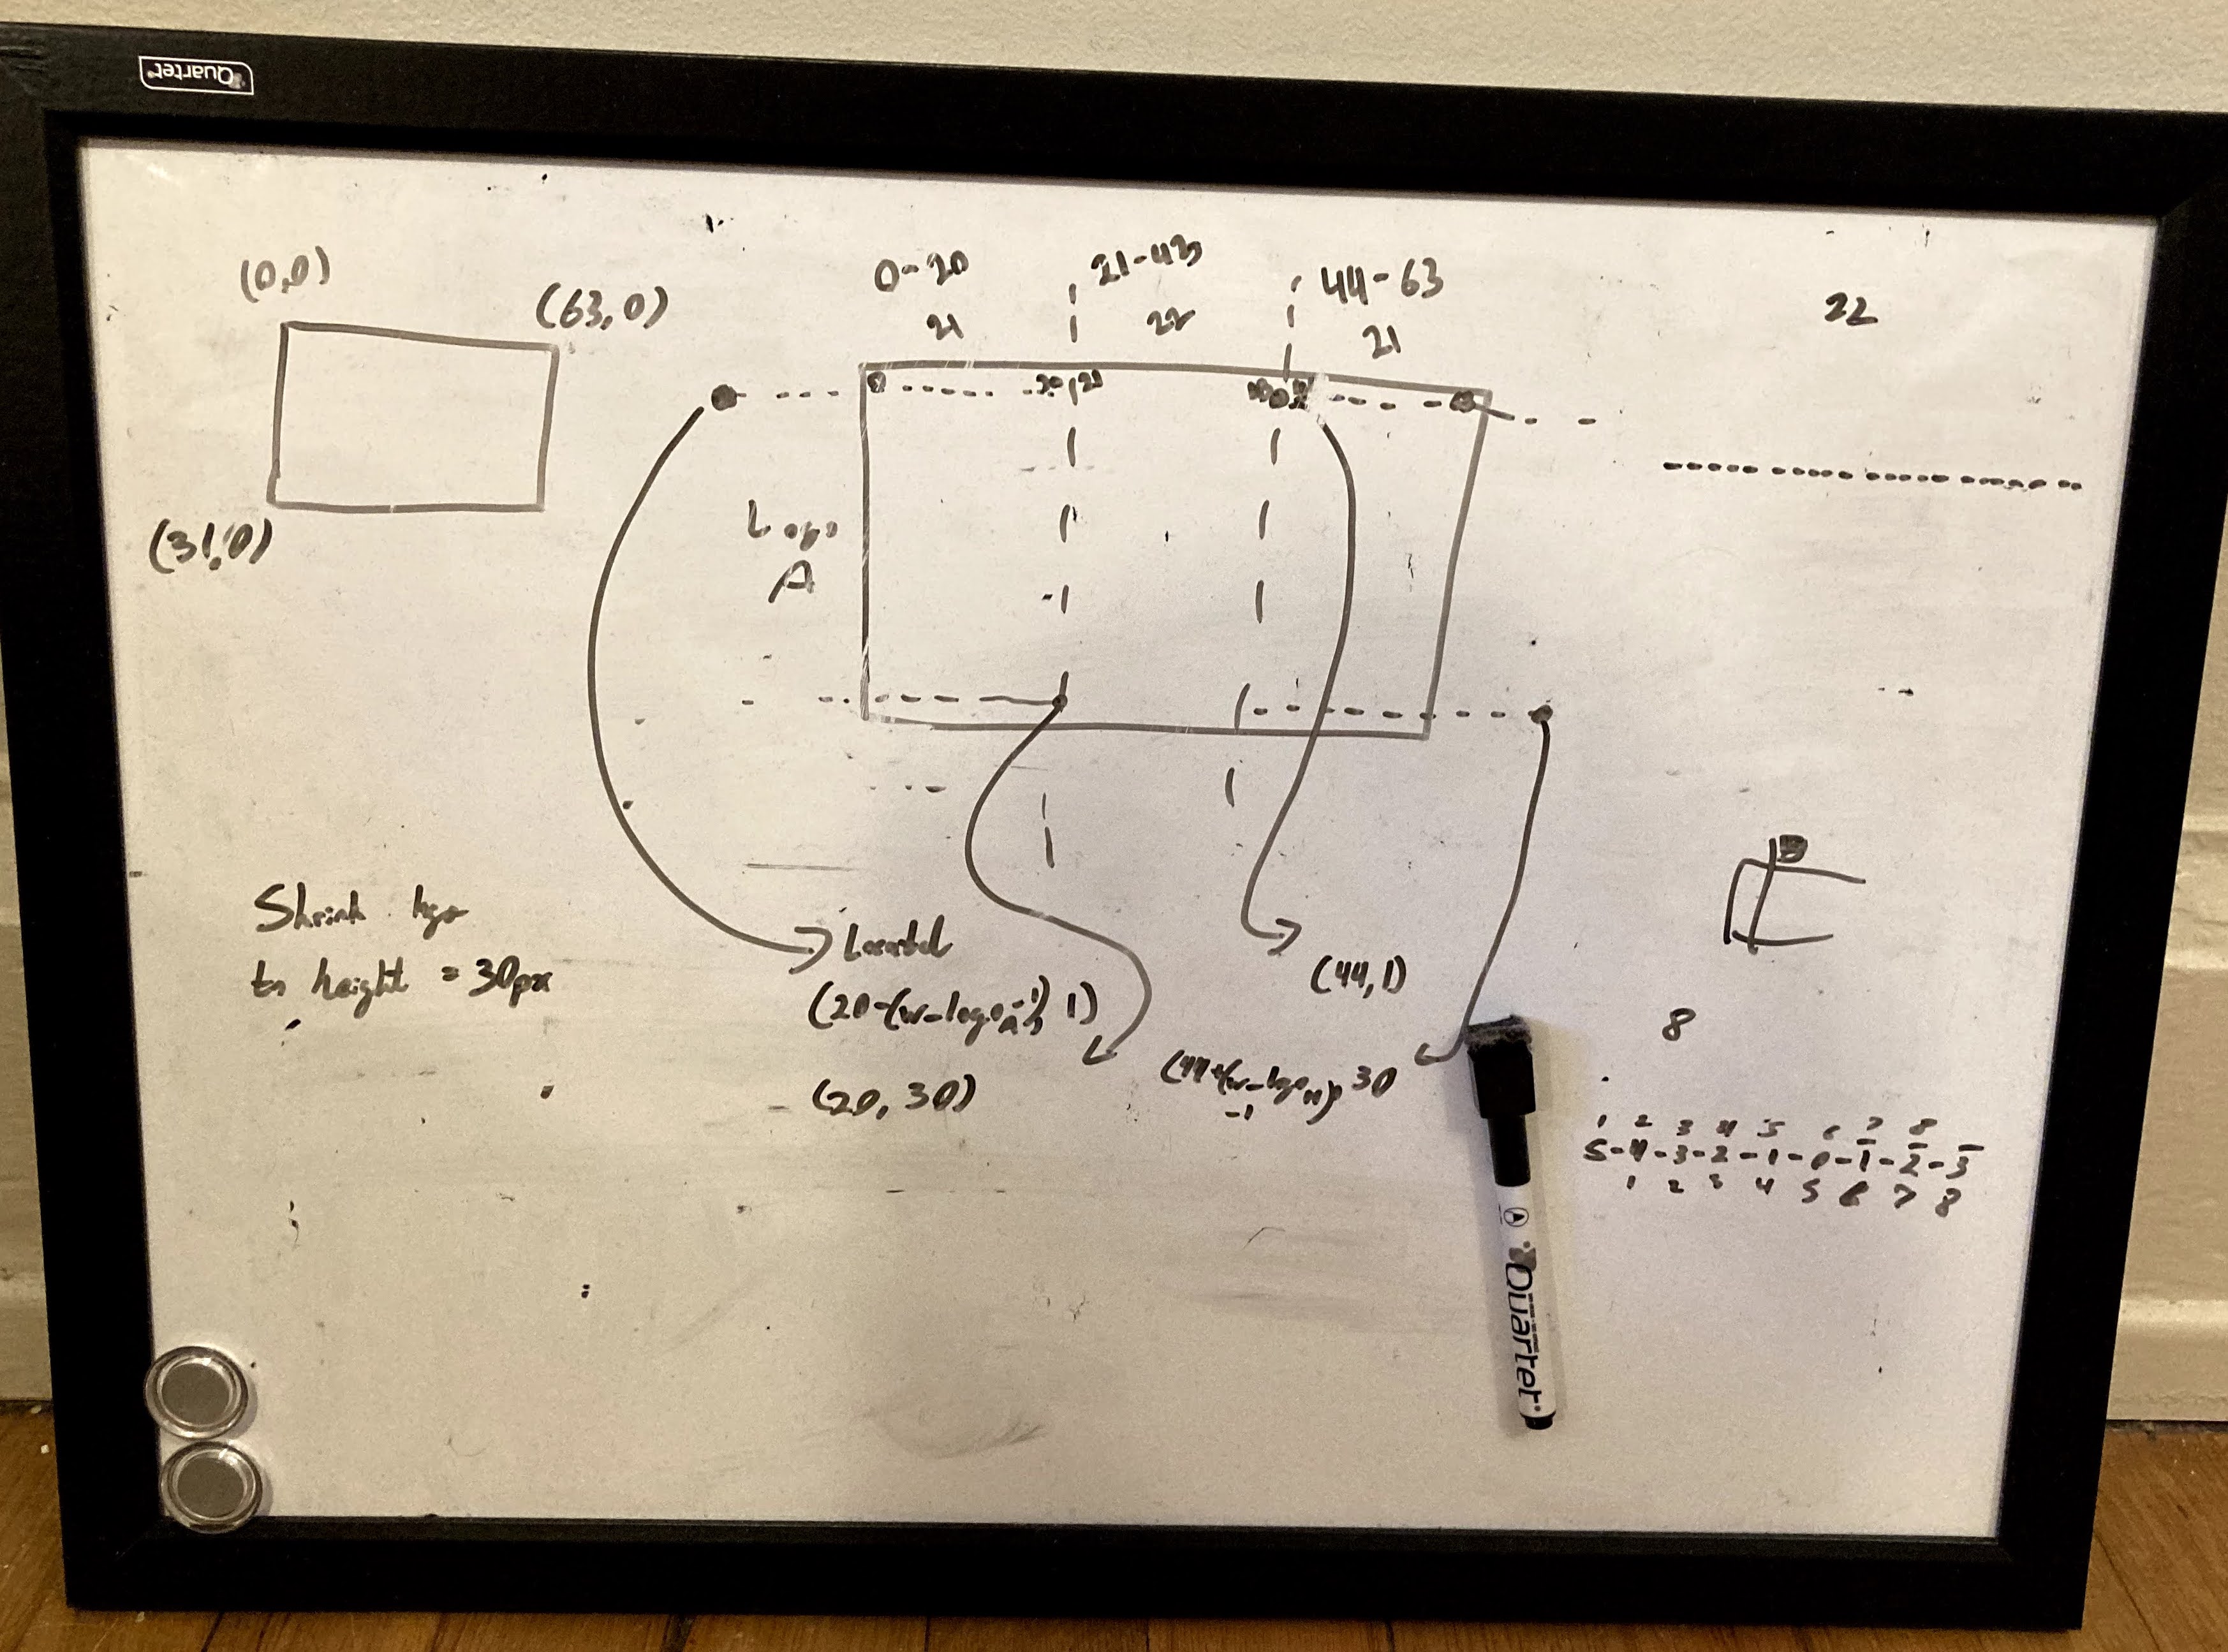 Quartet
(0,0)
(63, 0)
(31,0)
0-20
21
21-43
22
44-63
21
22
20 21
Logo
A
Shrink logo
to height = 30px
Located
(20-(w-logo A -1), 1)
(20, 30)
(44,1)
(44+(w-logo H), 30
-1
8
1 2 3 4 5 6 7 8
5-4-3-2-1-0-1-2-3
1 2 3 4 5 6 7 8
Quartet